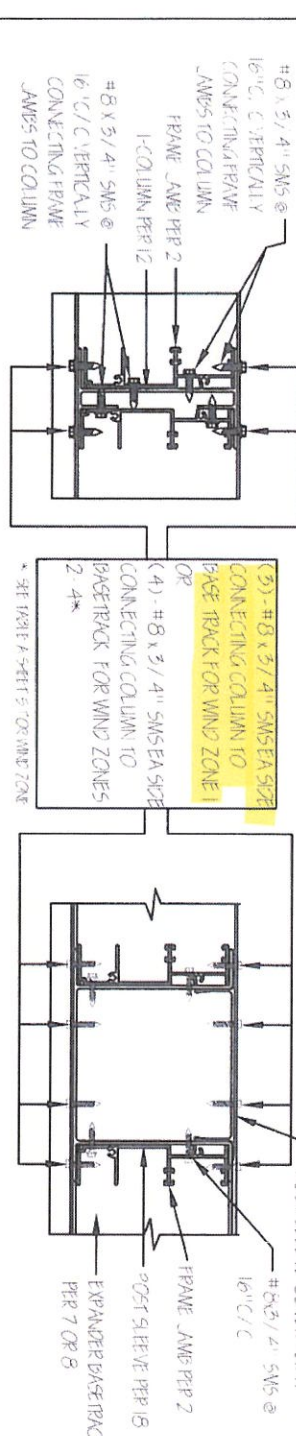 #8 x 3/4" SMS @
16" C/C VERTICALLY
CONNECTING FRAME
JAMBS TO COLUMN
FRAME JAMB PER 2
I-COLUMN PER 12
#8 x 3/4" SMS @
16" C/C VERTICALLY
CONNECTING FRAME
JAMBS TO COLUMN
(3) #8 x 3/4" SMS EA SIDE
CONNECTING COLUMN TO
BASE TRACK FOR WIND ZONE 1
OR
(4) - #8 x 3/4" SMS EA SIDE
CONNECTING COLUMN TO
BASE TRACK FOR WIND ZONES
2-4*
* SEE TABLE A SHEET 5 FOR WIND ZONE
#8x3/4" SMS @
16" C/C
FRAME JAMB PER 2
POST SLEEVE PER 18
EXPANDER BASE TRAC
PER 7 OR 8